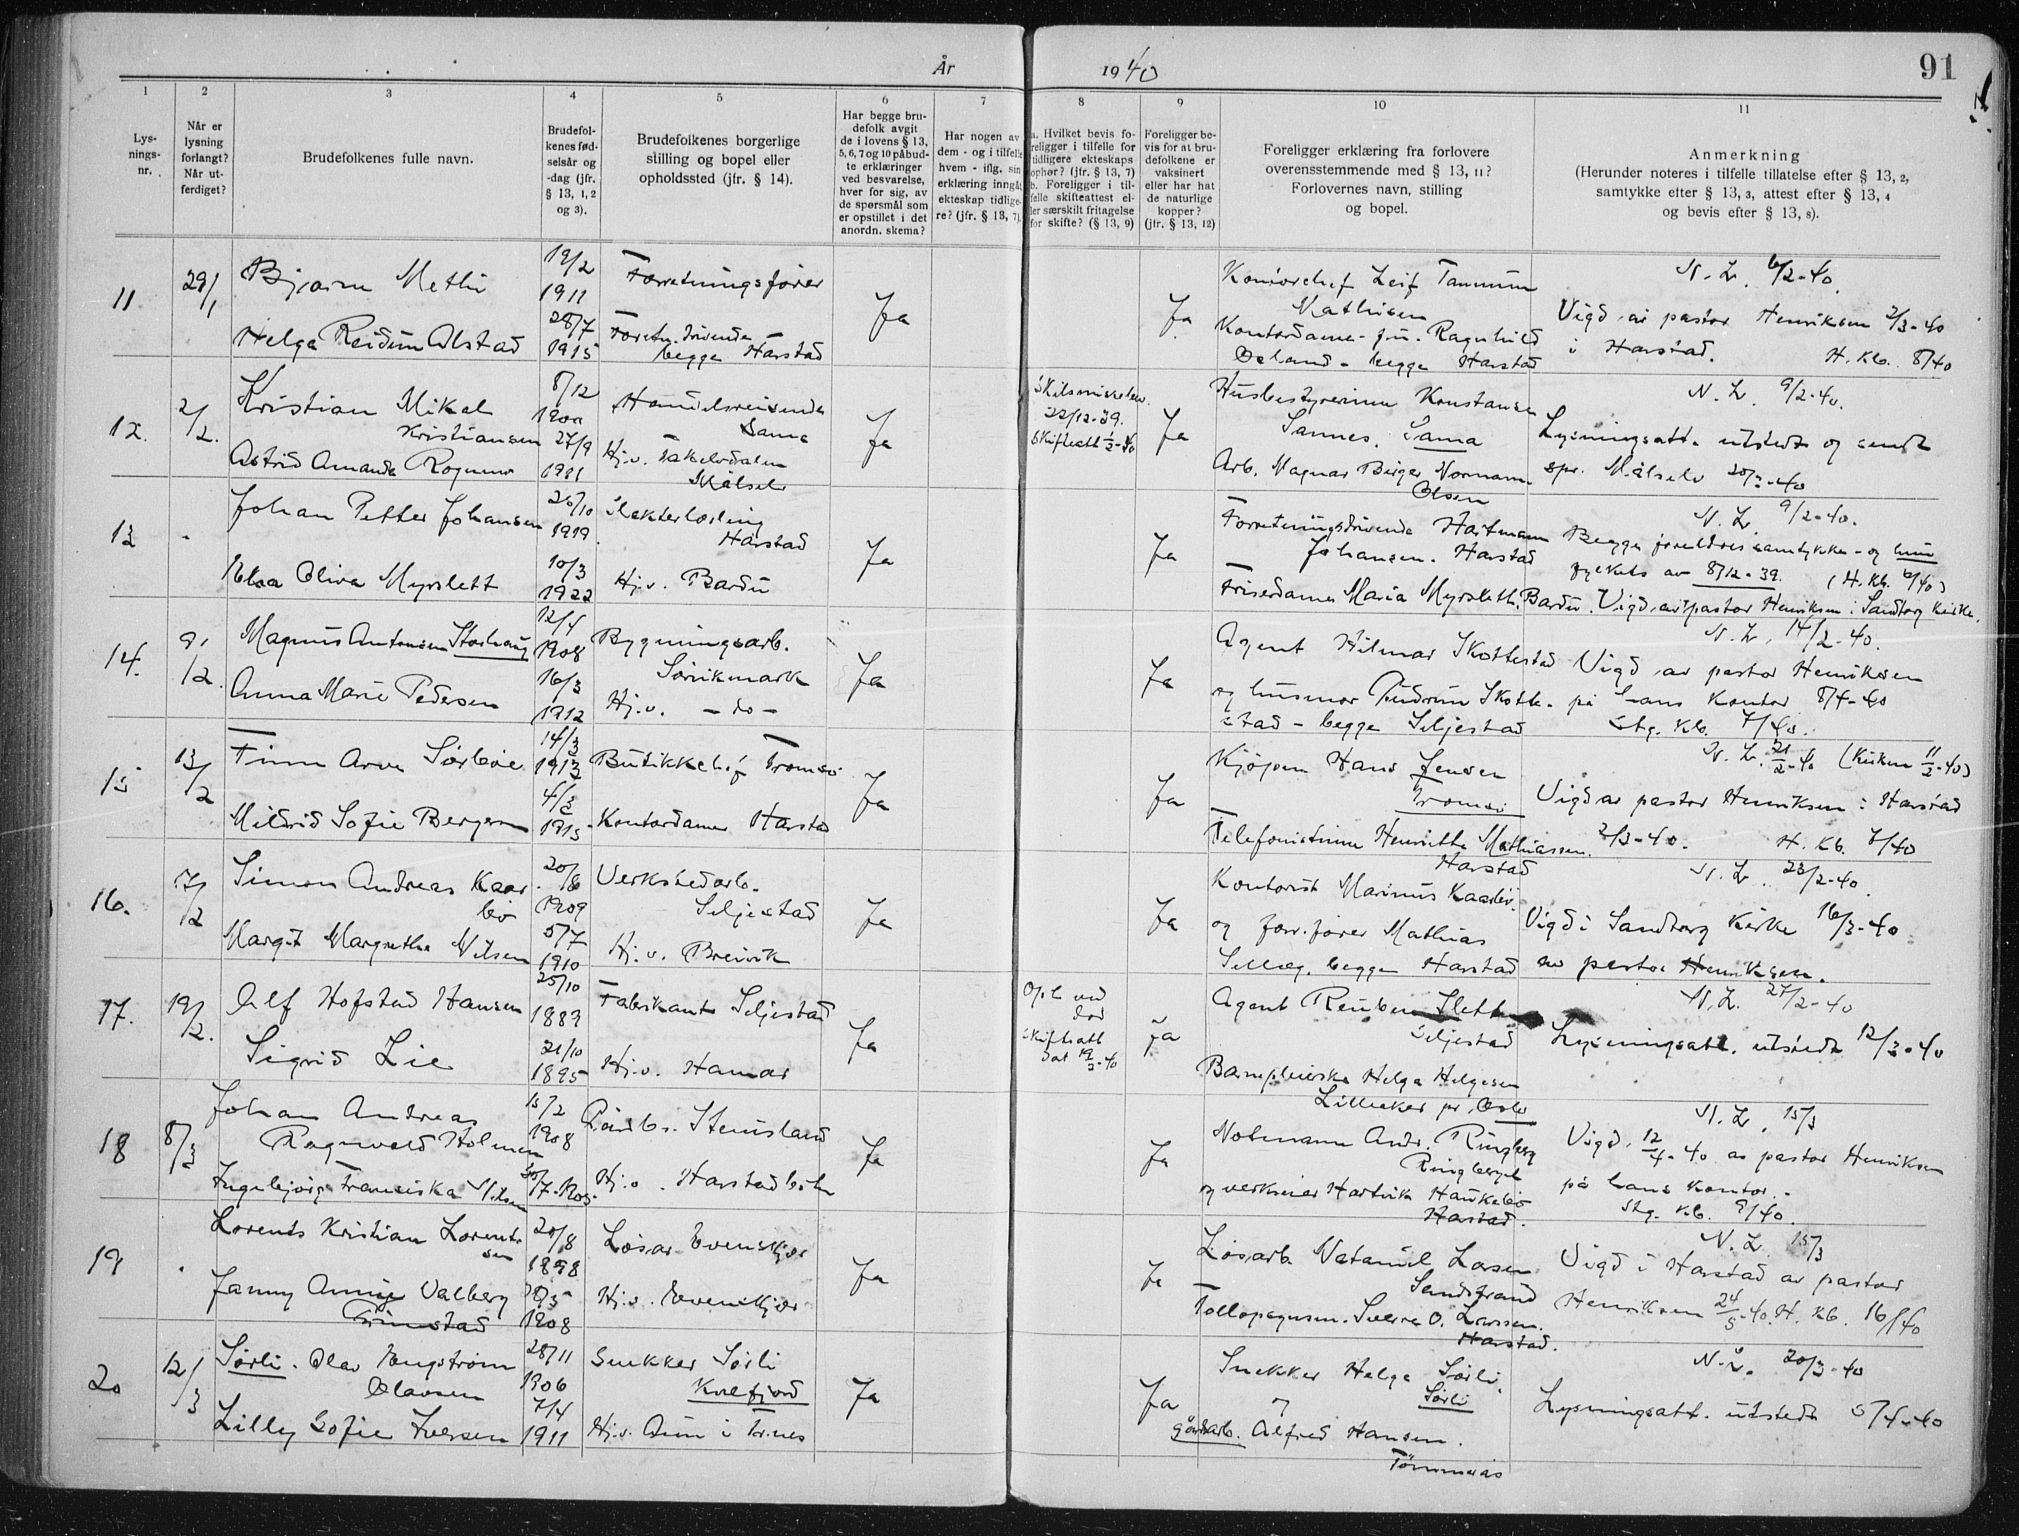 År 1940
91
1 2 3 4 5 6 7 8 9 10 11
Lys-
nings-
nr.
Når er
lysning
forlangt?
Når ut-
ferdiget?
Brudefolkenes fulle navn.
Brudefol-
kenes fød-
selsår og
-dag (jfr.
§ 13, 1, 2
og 3).
Brudefolkenes borgerlige
stilling og bopel eller
opholdssted (jfr. § 14).
Har begge bru-
defolk avgit
de i lovens § 13,
5, 6, 7 og 10 påbud-
te erklæringer
ved besvarelse,
hver for sig, av
de spørsmål som
er opstillet i det
anordn. skema?
Har nogen av
dem - og i tilfelle
hvem - iflg. sin
erklæring inngått
ekteskap tidlige-
re? (jfr. § 13, 7).
a. Hvilket bevis fo-
religger i tilfelle for
tidligere ekteskaps
ophør? (jfr. § 13, 7)
b. Foreligger i til-
felle skifteattest el-
ler særskilt fritagelse
for skifte? (§ 13, 9)
Foreligger be-
vis for at bru-
defolkene er
vaksinert
eller har hat
de naturlige
kopper?
(jfr. § 13, 12)
Foreligger erklæring fra forlovere
overensstemmende med § 13, 11?
Forlovernes navn, stilling
og bopel.
Anmerkning
(Herunder noteres i tilfelle tillatelse efter § 13, 2,
samtykke efter § 13, 3, attest efter § 13, 4
og bevis efter § 13, 8).
11. 29/1
Bjarne
19/2
1911
Forretningsfører
Ja
Ja
Kontorchef Leif Tannum
Mathisen
N. L. 6/2-40.
Helga Reidun Alstad
28/7
1915
Foretn. drivende
begge Harstad
Kontordame fru. Ragnhild
begge Harstad
Vigd av pastor Henriksen 2/3-40
i Harstad. H. Kb. 8/40
12. 2/2.
Kristian Mikal
Kristiansen
8/12
1900
Handelsreisende
Sama
Ja
22/12-39.
Ja
Husbestyrerinne Konstanse
Sannes. Sama
N. L. 9/2-40.
Astrid Amanda Rognmo
27/9
1911
Hj.v. Takelvdalen
Målselv
Arb. Magnar Birger Normann
Olsen
Lysningsatt. utstedt og sendt
spr. Målselv
13 -
Johan Petter Johansen
1919.
Slakterlærling
Harstad
Ja
Ja
Forretningsdrivende Hartmann
Johansen. Harstad
N. L. 9/2-40.
Elsa Oliva Myrslett
10/3
1922
Hj.v. Bardu
Friserdame Maria Myrslett. Bardu.
Begges foreldres samtykke - og
fylkets av 8/12-39. (H. Kb. 6/40)
Vigd av pastor Henriksen i Sandtorg kirke.
14. 9/2.
Magnus Antonsen Storhaug
12/4
1908
Bygningsarb.
Sørvikmark
Ja
Ja
Agent Hilmar Skottestad
N. L. 14/2-40.
Anna Marie Pedersen
16/3
1912
Hj.v. - do -
og husmor Gudrun Skotte-
stad - begge Seljestad
Vigd av pastor Henriksen
på hans kontor 8/4-40
Stg. Kb. 7/40.
15 13/2
Finn Arve Sørbøe
14/3
1913
Butikkchef Tromsø
Ja
Ja
Kjøpm Hans Jensen
Tromsø
N. L. 21/2-40
Mildrid Sofie Bergersen
1915
Kontordame Harstad
Telefonistinne Henriette Mathiassen.
Harstad
Vigd av pastor Henriksen i Harstad
2/3-40. H. Kb. 7/40
16. 17/2
Simon Andreas Kaar
bø
20/8
1909
Verkstedarb.
Seljestad
Ja
Ja
Kontorist Marinus Kaarbø.
N. L. 23/2-40.
Margit Margrethe Nilsen
5/7
1910
Hj.v. Breivik
og forr.fører Mathias
begge Harstad
Vigd i Sandtorg Kirke 16/3-40
av pastor Henriksen.
17. 19/2.
Alf Hofstad Hansen
25/10
1889
Fabrikant Seljestad
Ja
Opl. ved
død
Skifteatt
dat 19/2-40
Ja
Agent Reuben Slette
Seljestad
N. L. 27/2-40
Sigrid Lie
1895
Hj.v. Hamar
Barnepleierske Helga Helgesen
Lilleaker pr. Oslo
Lysningsatt. utstedt 12/3-40
18 8/3
Johan Andreas
Ragnvald Holmen
15/2
1908
Stensland
Ja
Ja
Notmann Andr. Ringberg
Ringberget
N. L. 15/3
Ingebjørg Franciska Nilsen
Hj.v. Harstadbotn
og verkseier Hartvik Haukebø
Harstad.
Vigd. 12/4-40 av pastor Henriksen
på hans kontor.-
Stg. Kb. 9/40.
19 -
Lorents Kristian Lorent-
sen
20/8
1898
Løsar. Evenskjer
Ja
Ja
Løsarb Natanael Larsen
Sandstrand
N. L. 15/3
Fanny Valberg
Grimstad
1908
Hj.v. Evenskjer
Tollopsynsm. Sverre O. Larssen.
Harstad.
Vigd i Harstad av pastor
Henriksen 24/5-40. H. Kb. 16/40
20 12/3
Sørli. Olav Engstrøm
Olavsen
28/11
1906
Snekker Sørli
Kvefjord
Ja
Ja
Snekker Helge Sørli.
Sørli
og
N. L. 20/3-40
Lilly Sofie Iversen
7/4
1911
Hj.v.
gårdarb. Alfred Hansen.
Tømmerås
Lysningsatt. utstedt 5/4-40